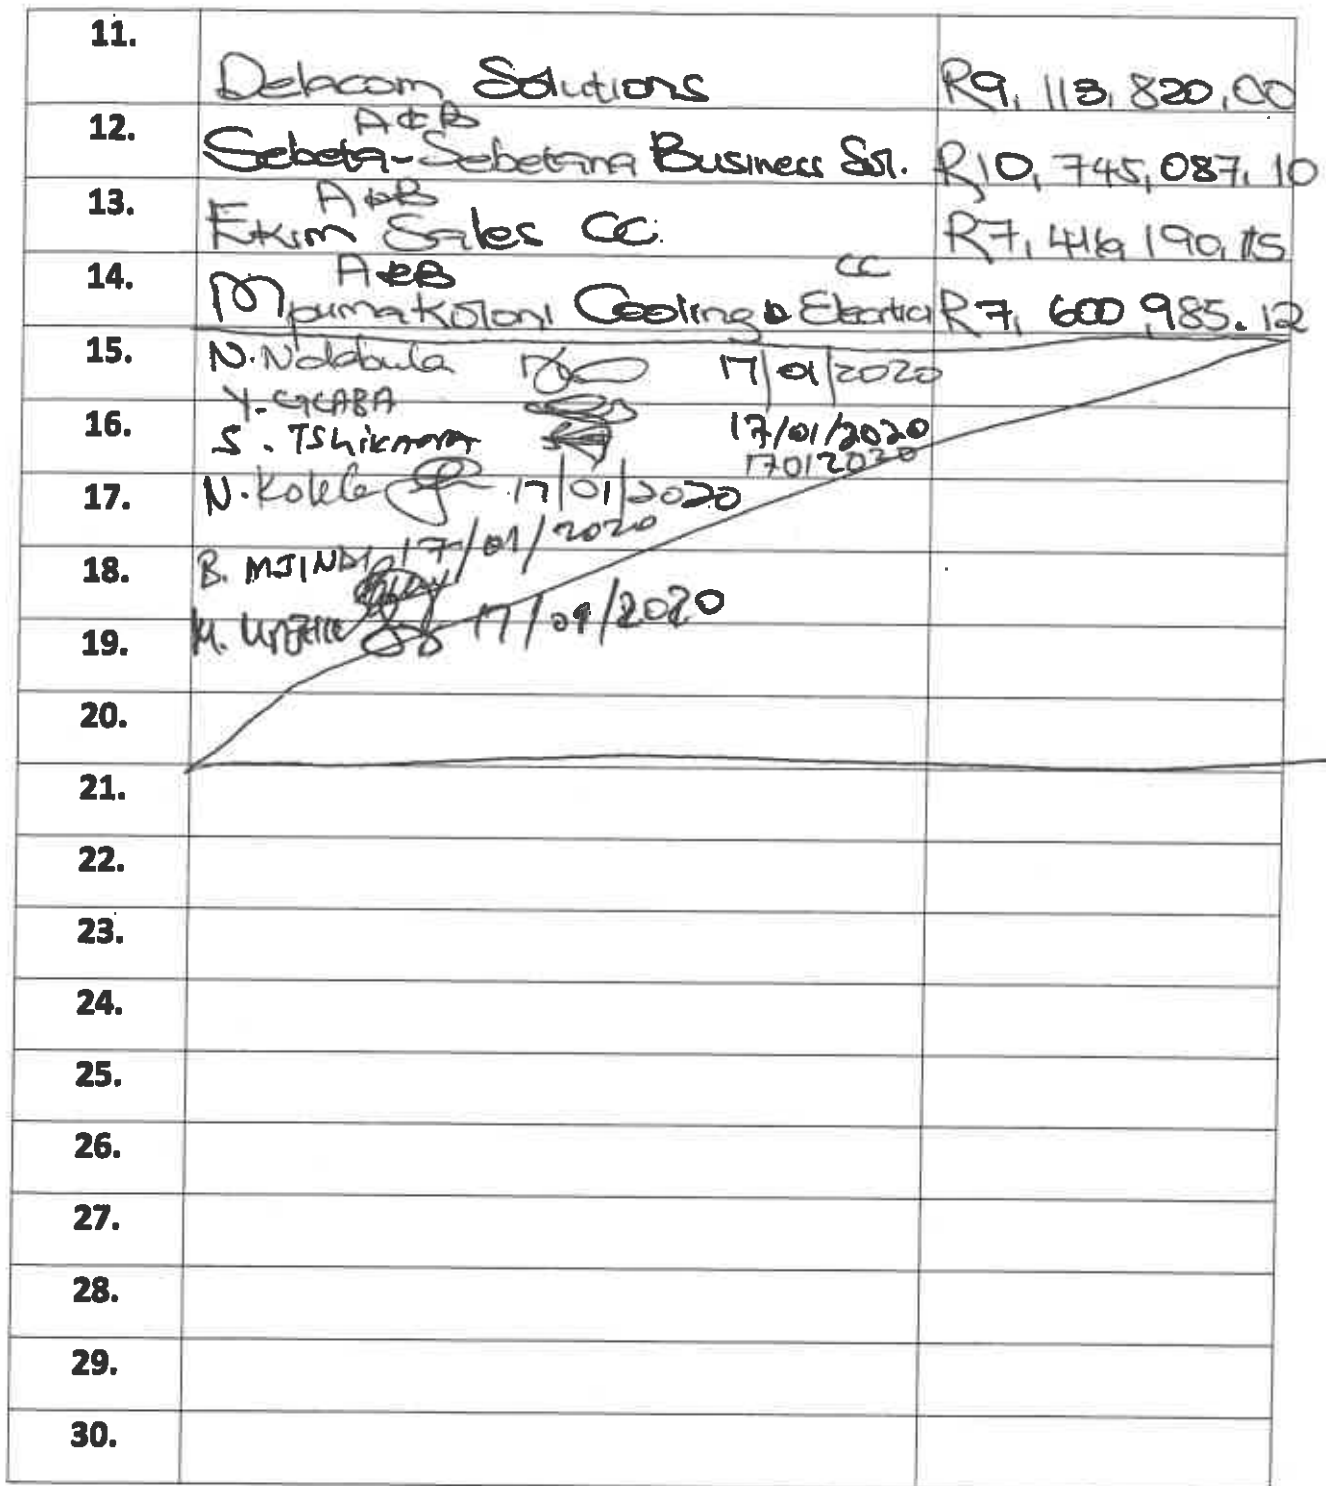 11.
Delacom Solutions R9, 113, 820,00
12. A & B
Sebeta-Sebetana Business Sol. R10, 745, 087. 10
13. A & B
Ekim Sales CC. R7, 416, 190, 15
14. A & B CC
Mpumakoloni Cooling & Electrical R7, 600, 985. 12
15. N. Ndabula 17/01/2020
Y. GCABA
16. S. Tshikmara 17/01/2020
17012020
17. N. Kolela 17/01/2020
18. B. MJINDI 17/01/2020
19. M. 17/01/2020
20.
21.
22.
23.
24.
25.
26.
27.
28.
29.
30.